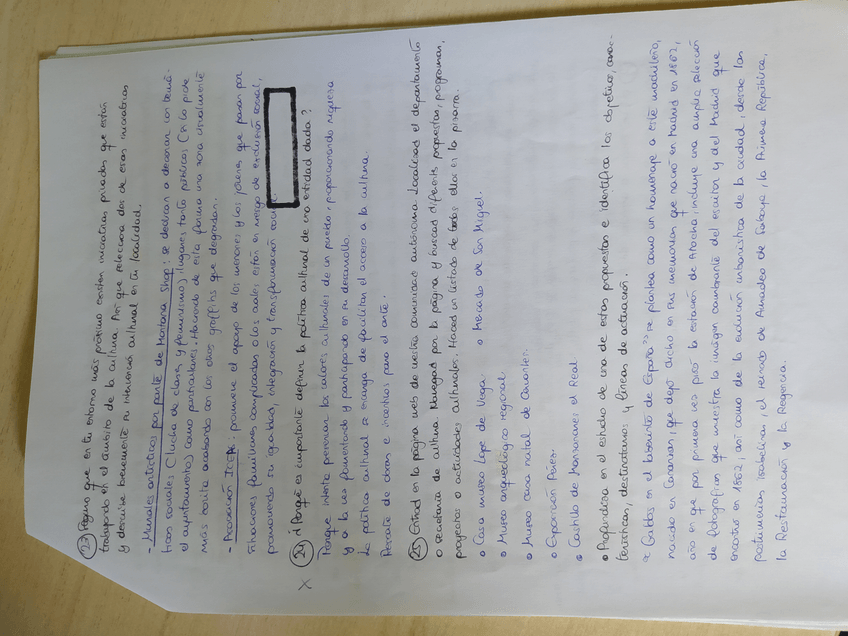 23) Seguro que en tu entorno más próximo existan iniciativas privadas que estén
trabajando en el ámbito de la cultura. Así que selecciona dos de esas iniciativas
y describe brevemente su intervención cultural en tu localidad.
- Murales artísticos por parte de Montana Shop: se dedican a decorar con temá-
ticas sociales (lucha de clases y feminismo), lugares tanto públicos (se lo pide
el ayuntamiento) como particulares. Haciendo de esta forma una zona visualmente
más bonita acabando con los otros graffitis que degradan.
- Asociación : promueve el apoyo de los menores y los jóvenes que pasan por
situaciones familiares complicadas o los cuales están en riesgo de exclusión social,
promoviendo su igualdad, integración y transformación
X 24) ¿Porqué es importante definir la política cultural de una entidad dada?
Porque intenta preservar los valores culturales de un pueblo, proporcionando riqueza
y a la vez fomentando y participando en su desarrollo.
La política cultural se encarga de facilitar el acceso a la cultura.
Rescate de obras e incentivos para el arte.
25) Entrad en la página web de vuestra comunidad autónoma. Localizad el departamento
o secretaría de cultura. Navegad por la página y buscad diferentes propuestas, programas,
proyectos o actividades culturales. Haced un listado de todas ellas en la pizarra.
• Casa museo Lope de Vega. • Mercado de San Miguel.
• Museo arqueológico regional.
• Museo casa natal de Cervantes.
• Exposición Pérez.
• Castillo de Manzanares el Real
• Profundizad en el estudio de una de estas propuestas e identifica los objetivos, carac-
terísticas, destinatarios y líneas de actuación.
"Galdós en el laberinto de España" se plantea como un homenaje a este madrileño,
nacido en Canarias, que dejó dicho en sus memorias que nació en Madrid en 1862,
año en que por primera vez pisó la estación de Atocha, incluye una amplia selección
de fotografías que muestra la imagen cambiante del escritor y del Madrid que
encontró en 1862, así como de la evolución urbanística de la ciudad, desde las
postrimerías isabelinas, el reinado de Amadeo de Saboya, la Primera República,
la Restauración y la Regencia.